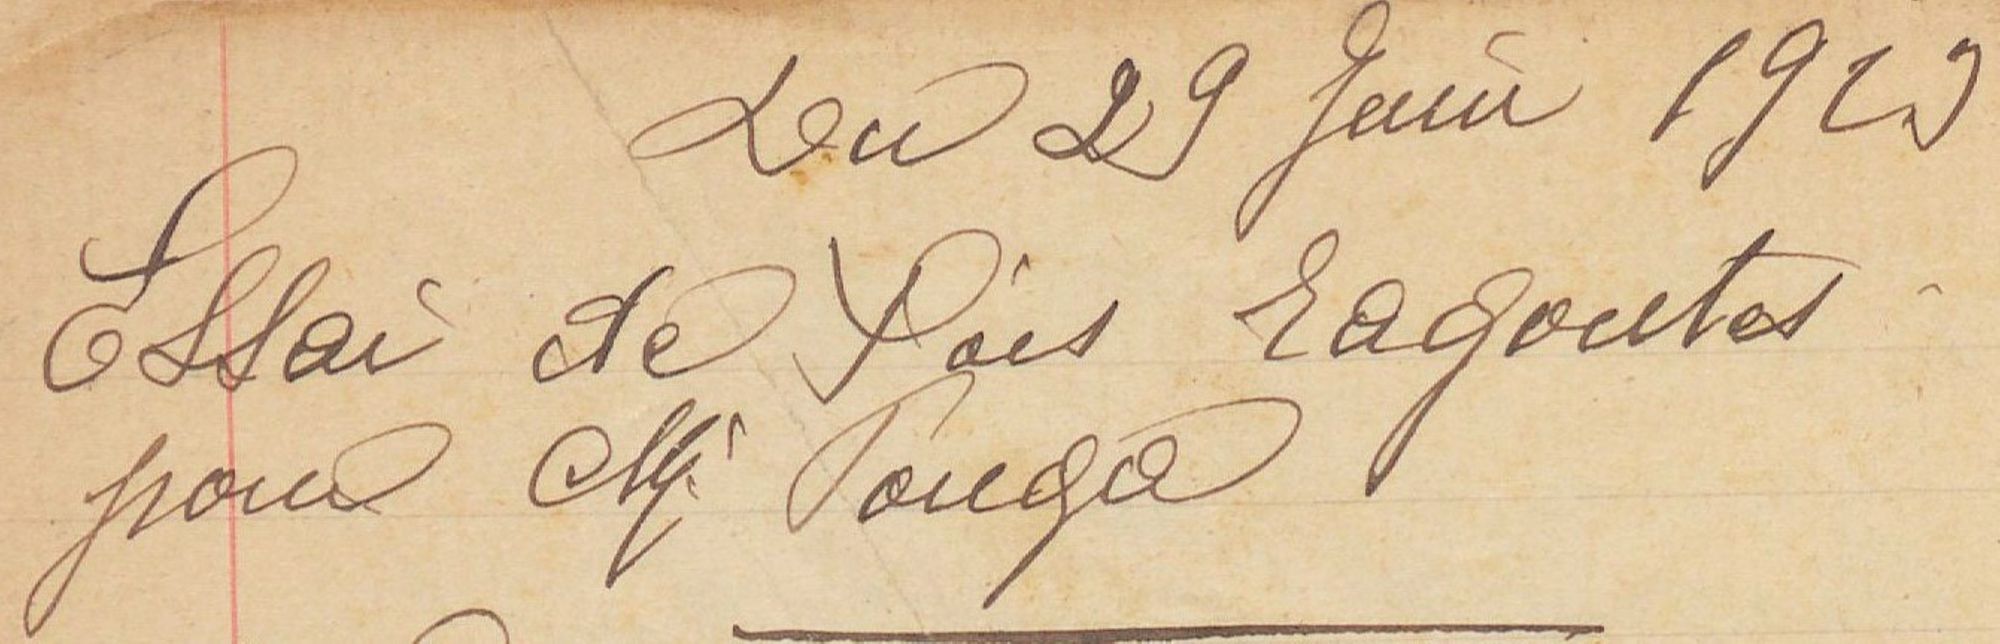 Du 29 Juin 1913
Essai de Pois Ragoutes
pour Mr Pouga